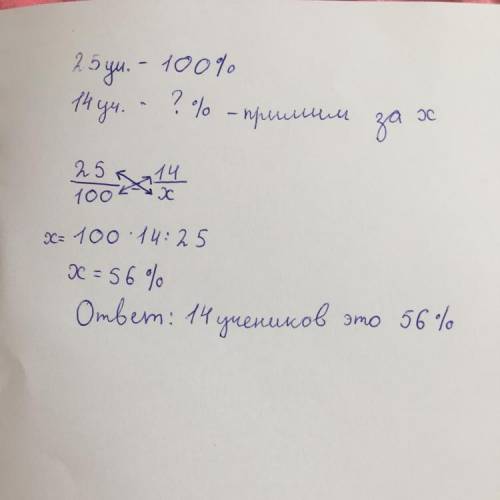 25 уч. - 100%
14 уч. - ? % - примим за x
25 14
100 x
x = 100 · 14 : 25
x = 56 %
Ответ: 14 учеников это 56 %